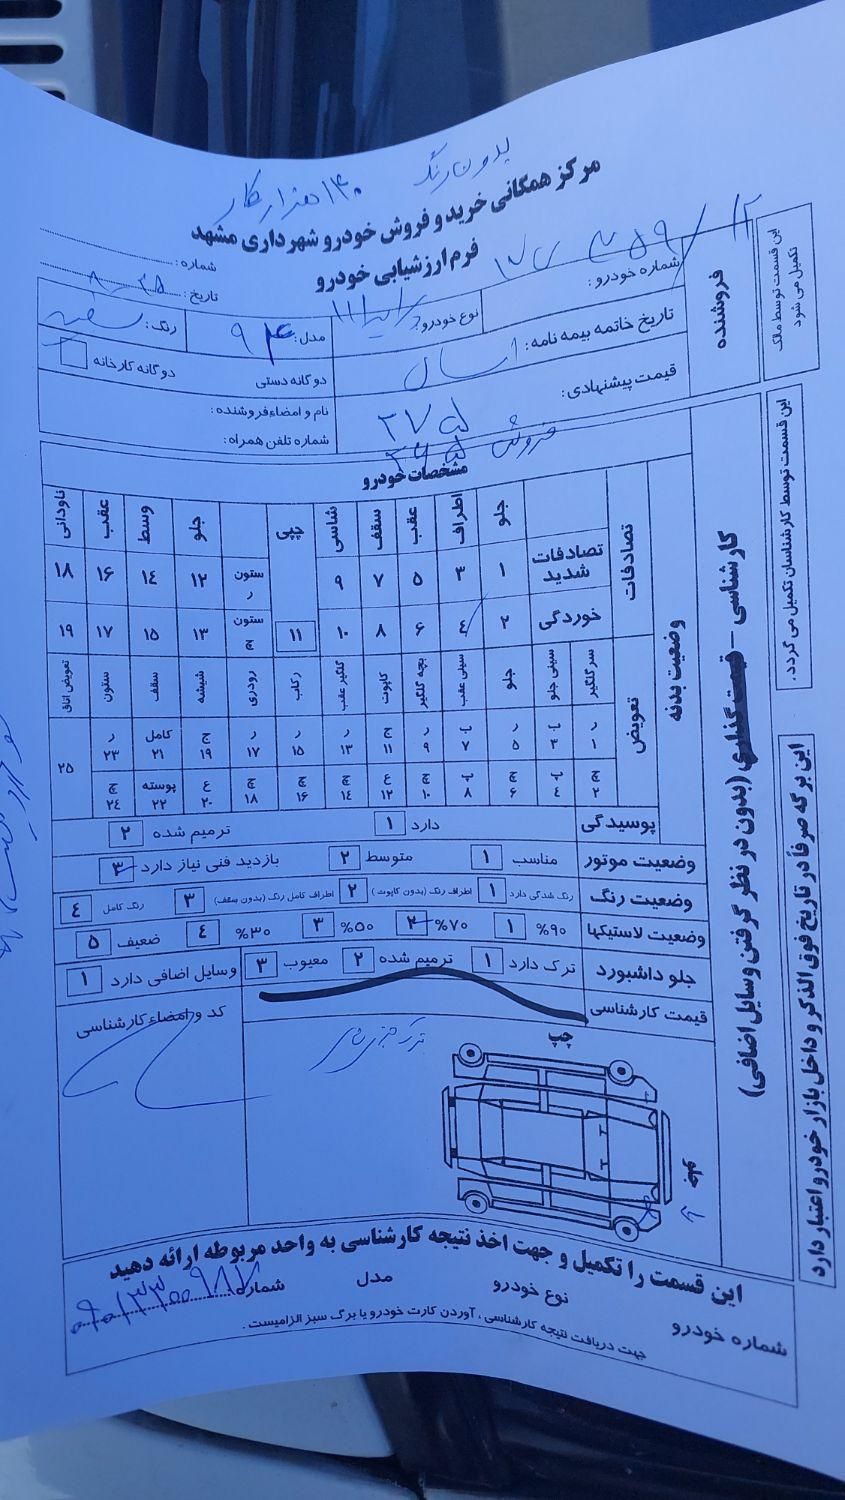 بدون رنگ ۱۴۰ هزار کار
مرکز همگانی خرید و فروش خودرو شهرداری مشهد
فرم ارزشیابی خودرو
شماره :
تاریخ :
این قسمت توسط مالک تکمیل می شود
فروشنده
شماره خودرو :
نوع خودرو:
مدل: ۹۴
رنگ: سفید
تاریخ خاتمه بیمه نامه:
دوگانه دستی
دوگانه کارخانه
قیمت پیشنهادی: ۲۷۵
فروش ۲۶۵
نام و امضاء فروشنده :
شماره تلفن همراه :
مشخصات خودرو
این قسمت توسط کارشناسان تکمیل می گردد.
کارشناسی - قیمت گذاری (بدون در نظر گرفتن وسایل اضافی)
وضعیت بدنه
تصادفات
جلو اطراف عقب سقف شاسی رپی جلو وسط عقب ناودانی
تصادفات شدید ۱ ۳ ۵ ۷ ۹ ستون ر ۱۲ ۱۴ ۱۶ ۱۸
خوردگی ۲ ۴ ۶ ۸ ۱۰ ۱۱ ستون چ ۱۳ ۱۵ ۱۷ ۱۹
تعویض
سر گلگیر سینی جلو جلو سینی عقب بچه گلگیر کاپوت گلگیر عقب رکاب رودری شیشه سقف ستون تعویض اتاق
ر ۱ ب ۳ ر ۵ ب ۷ ر ۹ ج ۱۱ ر ۱۳ ر ۱۵ ر ۱۷ ج ۱۹ کامل ۲۱ ر ۲۳ ۲۵
چ ۲ پ ۴ چ ۶ پ ۸ چ ۱۰ ع ۱۲ چ ۱۴ چ ۱۶ چ ۱۸ ع ۲۰ پوسته ۲۲ چ ۲۴
پوسیدگی دارد ۱ ترمیم شده ۲
وضعیت موتور مناسب ۱ متوسط ۲ بازدید فنی نیاز دارد ۳
وضعیت رنگ رنگ شدگی دارد ۱ اطراف رنگ (بدون کاپوت) ۲ اطراف کامل رنگ (بدون سقف) ۳ رنگ کامل ۴
وضعیت لاستیکها ۹۰% ۱ ۷۰% ۲ ۵۰% ۳ ۳۰% ۴ ضعیف ۵
جلو داشبورد ترک دارد ۱ ترمیم شده ۲ معیوب ۳ وسایل اضافی دارد ۱
قیمت کارشناسی
کد و امضاء کارشناسی
چپ
جلو
این برگه صرفاً در تاریخ فوق الذکر و داخل بازار خودرو اعتبار دارد
این قسمت را تکمیل و جهت اخذ نتیجه کارشناسی به واحد مربوطه ارائه دهید
شماره خودرو نوع خودرو مدل شماره
جهت دریافت نتیجه کارشناسی ، آوردن کارت خودرو یا برگ سبز الزامیست .